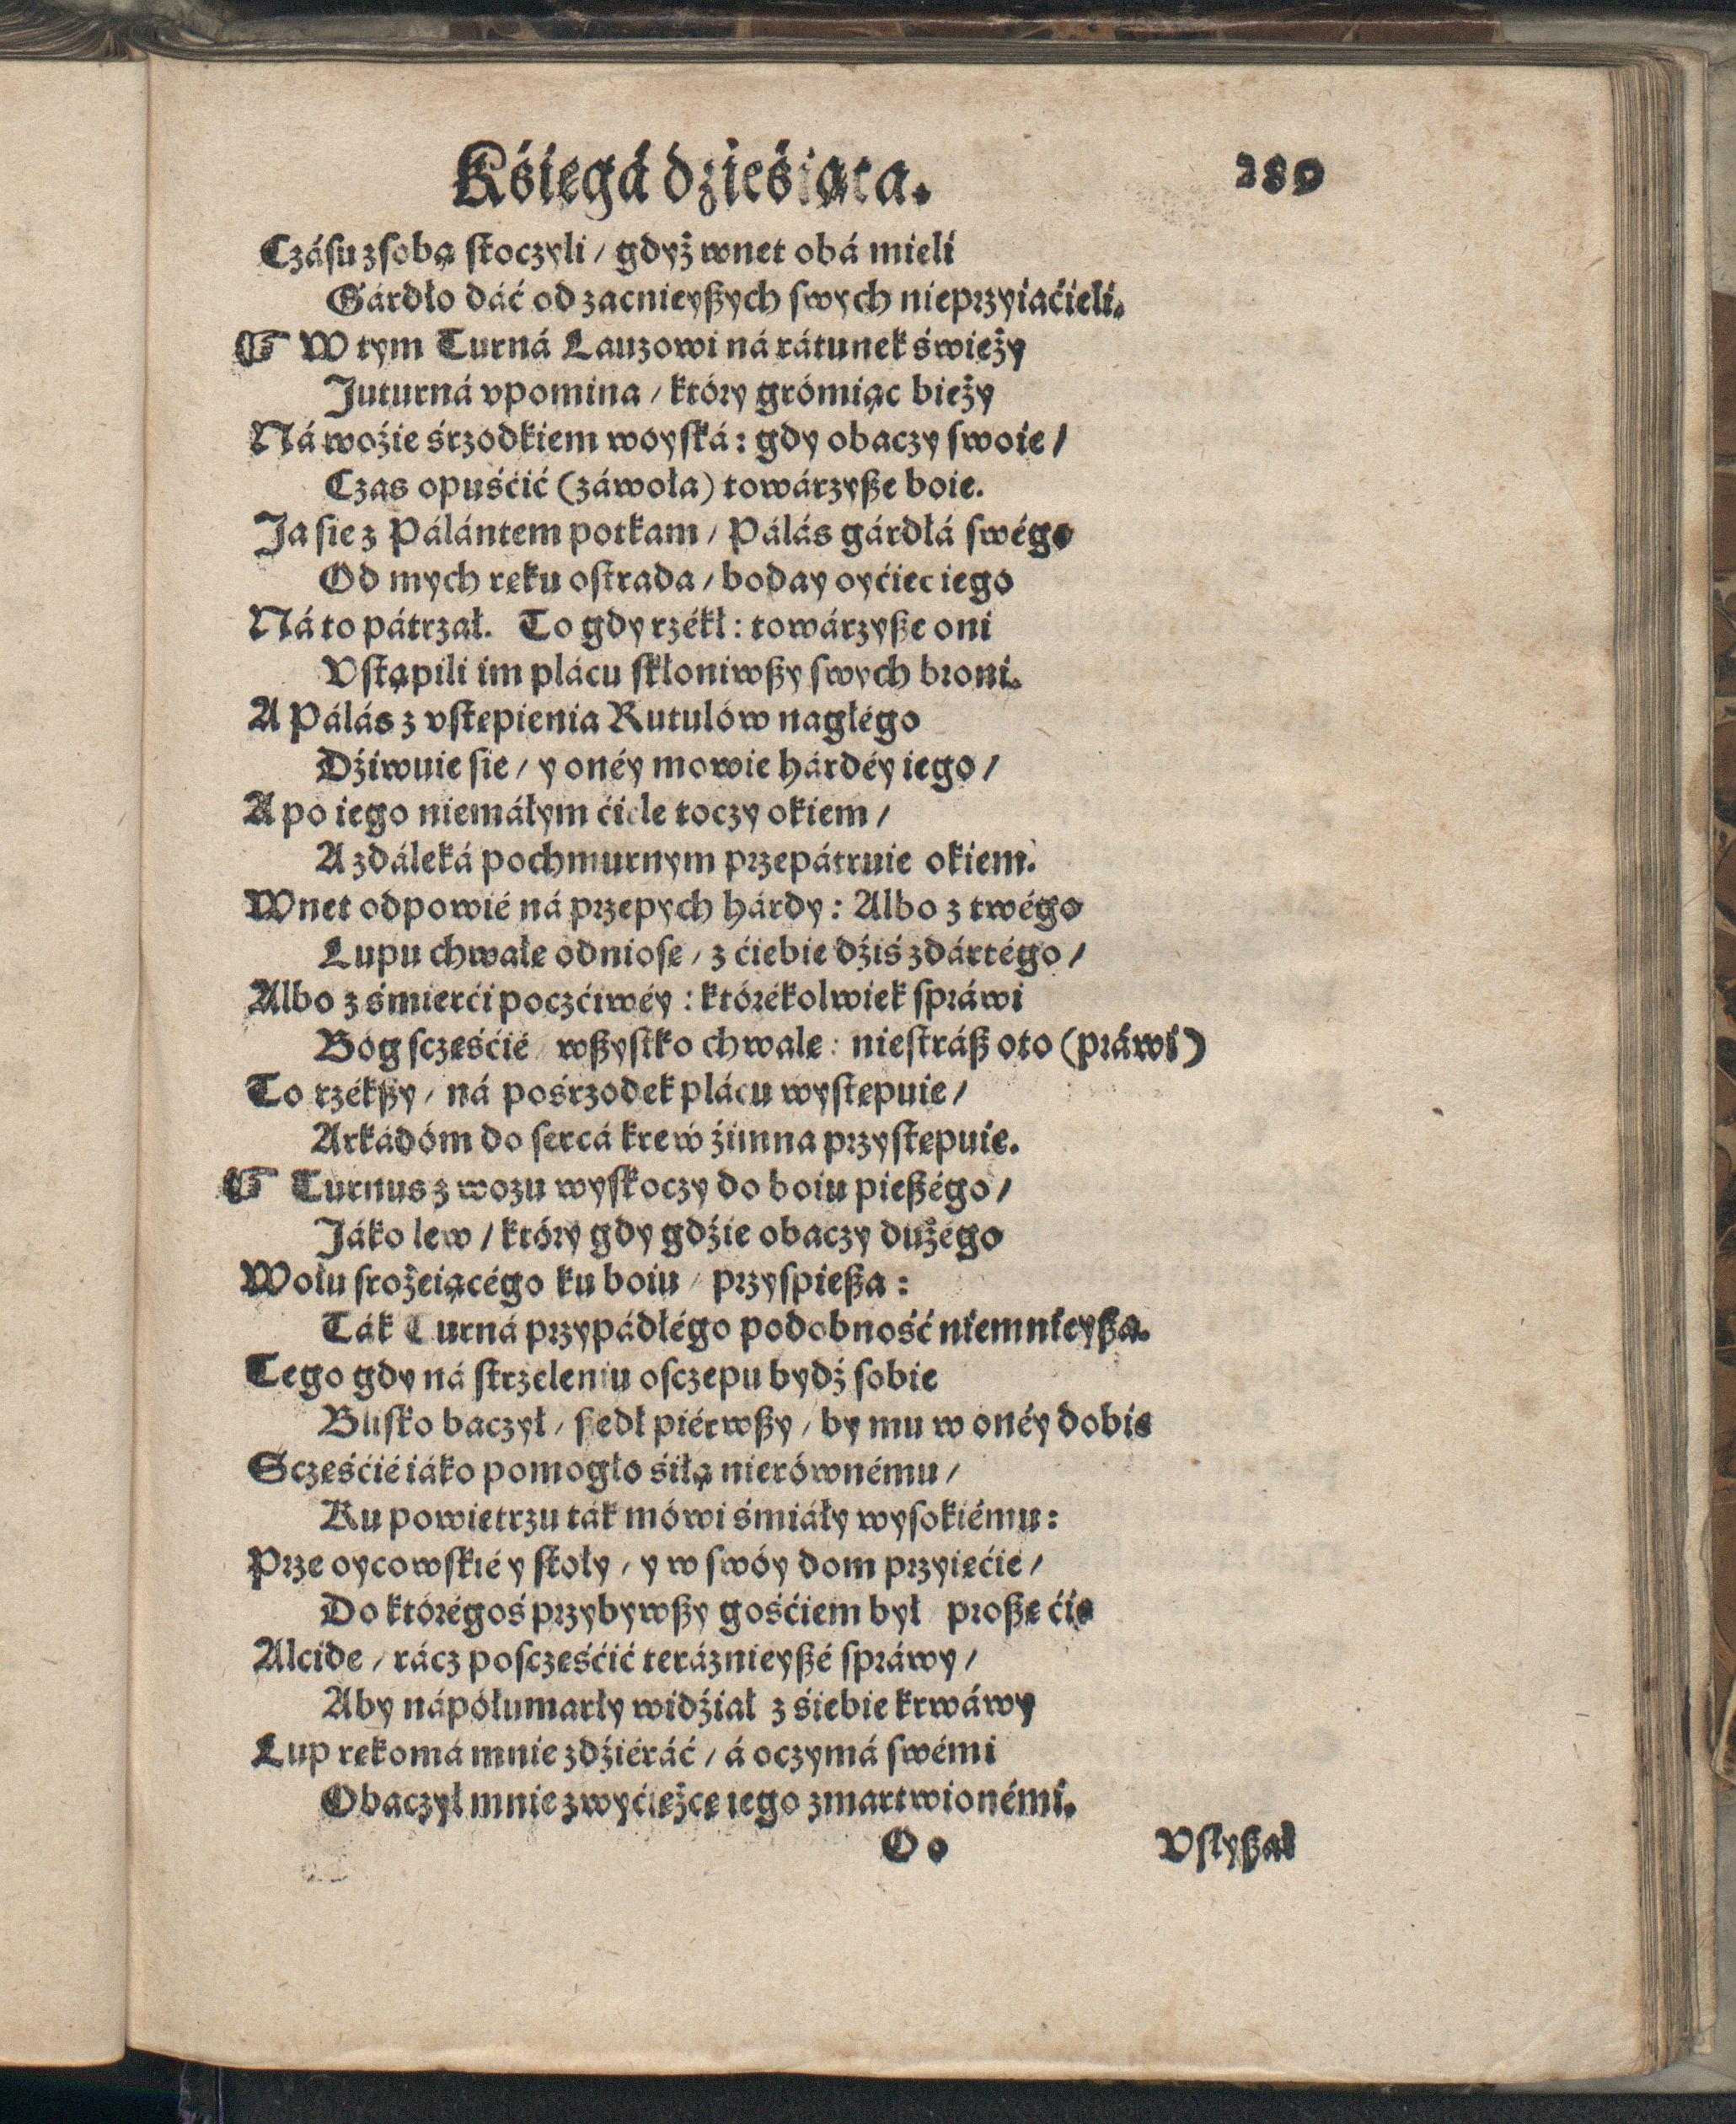 Kśięgá dźieśiąta. 289
Czásu z sobą stoczyli / gdyż wnet obá mieli
Gárdło dáć od zacnieyßych swych nieprzyiaćieli.
☞ W tym Turná Lauzowi ná rátunek świeży
Juturná vpomina / który grómiąc bieży
Ná woźie śrzodkiem woyská: gdy obaczy swoie /
Czas opuśćić (záwoła) towárzyße boie.
Ja sie z Pálántem potkam / Pálás gárdłá swégo
Od mych ręku ostrada / boday oyćiec iego
Ná to pátrzał. To gdy rzékł: towárzyße oni
Vstąpili im plácu skłoniwßy swych broni.
A Pálás z vstępienia Rutulów nagłégo
Dźiwuie sie / y onéy mowie hárdéy iego /
A po iego niemáłym ćiele toczy okiem /
A zdáleká pochmurnym przepátruie okiem.
Wnet odpowié ná przepych hárdy: Albo z twégo
Lupu chwałę odniosę / z ćiebie dźiś zdártégo /
Albo z śmierći poczćiwéy: którékolwiek spráwi
Bóg sczęśćié / wßystko chwalę: niestráß oto (práwi)
To rzékßy / ná pośrzodek plácu występuie /
Arkádóm do sercá krew źimna przystępuie.
☞ Turnus z wozu wyskoczy do boiu pießégo /
Jáko lew / który gdy gdźie obaczy dużégo
Wołu srożeiącégo ku boiu / przyspießa:
Ták Turná przypádłégo podobność niemnieyßa.
Tego gdy ná strzeleniu osczepu bydź sobie
Blisko baczył / ßedł piérwßy / by mu w onéy dobie
Sczęśćié iáko pomogło śiłą nierównému /
Ku powietrzu ták mówi śmiáły wysokiému:
Prze oycowskié y stoły / y w swóy dom przyięćie /
Do którégoś przybywßy gośćiem był proßę ćię
Alcide / rácz posczęśćić teráznieyßé spráwy /
Aby nápółumarły widźiał z śiebie krwáwy
Lup rękomá mnie zdźiéráć / á oczymá swémi
Obaczył mnie zwyćięźcę iego zmartwionémi.
Oo Vsłyßał